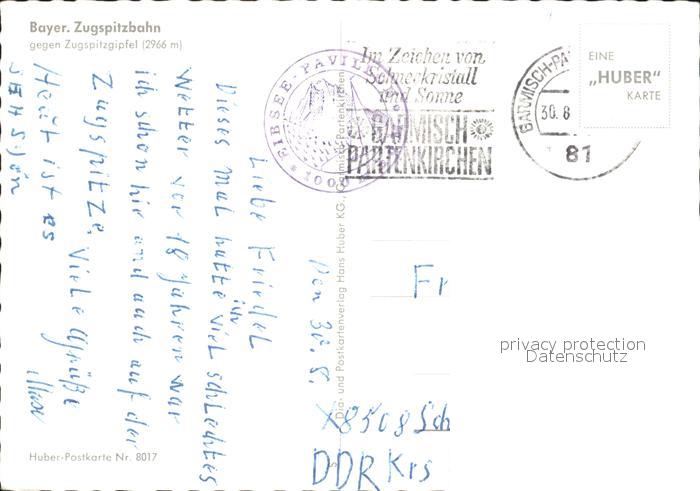 Bayer. Zugspitzbahn
gegen Zugspitzgipfel (2966 m)
Den 30. 8.
Liebe Friedel
Dieses mal hatte ich viel schlechtes
Wetter vor 18 Jahren war
ich schon hier und auch auf der
Zugspitze, Viele Grüße
Heut ist es
sehr schön
Huber-Postkarte Nr. 8017
Dia- und Postkartenverlag Hans Huber KG., Garmisch-Partenkirchen
EIBSEE-PAVILLON
1000
Im Zeichen von
Schneekristall
und Sonne
GARMISCH
PARTENKIRCHEN
GARMISCH-PA
30. 8
81
EINE
„HUBER"
KARTE
Fr
X8508 Sch
DDR Krs
privacy protection
Datenschutz